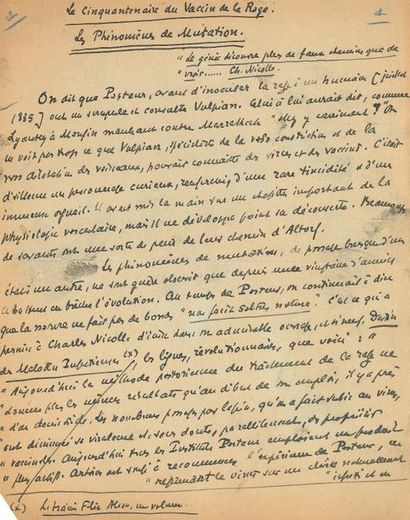 Le Cinquantenaire du Vaccin de la Rage.
1
Les Phénomènes de Mutation.
"Le génie découvre plus de faux chemins que de
"vrais...... Ch. Nicolle.
On dit que Pasteur, avant d'inoculer la rage à un humain (juillet
1885) eut un scrupule et consulta Vulpian. Celui-ci lui aurait dit, comme
Lyautey à Mangin marchant contre Marrakech "allez y carrément!" On
ne voit pas trop ce que Vulpian, spécialiste de la vaso constriction et de la
vaso dilatation des vaisseaux, pouvait connaître des virus et des vaccins. C'était
d'ailleurs un personnage curieux, renfermé, d'une rare timidité et d'un
immense orgueil. Il avait mis la main sur un chapitre important de la
physiologie vasculaire, mais il ne développa point sa découverte. Beaucoup
de savants ont une sorte de peur de leur chemin d'Altorf.
Les phénomènes de mutation, de passage brusque d'un
état à un autre, ne sont guère observés que depuis une vingtaine d'années
et battent en brèche l'évolution. Au temps de Pasteur, on continuait à dire
que la nature ne fait pas de bonds "non facit saltus natura". C'est ce qui a
permis à Charles Nicolle d'écrire dans son admirable ouvrage, Destin
des Maladies Infectieuses (x), les lignes, révolutionnaires, que voici: "
"Aujourd'hui la méthode pastorienne du traitement de la rage ne
"donne plus les mêmes résultats qu'au début de son emploi, il y a près
"d'un demi siècle. Les nombreux passages par lapin, qu'on a fait subir au virus,
ont diminué sa virulence et, sans doute, parallèlement, ses propriétés
"vaccinales. Aujourd'hui tous les Instituts Pasteur emploient un produit
"l'expérience de Pasteur, en
"reprenant le virus sur un chien naturellement
"infecté et en
(x) Librairie Félix Alcan, un volume.